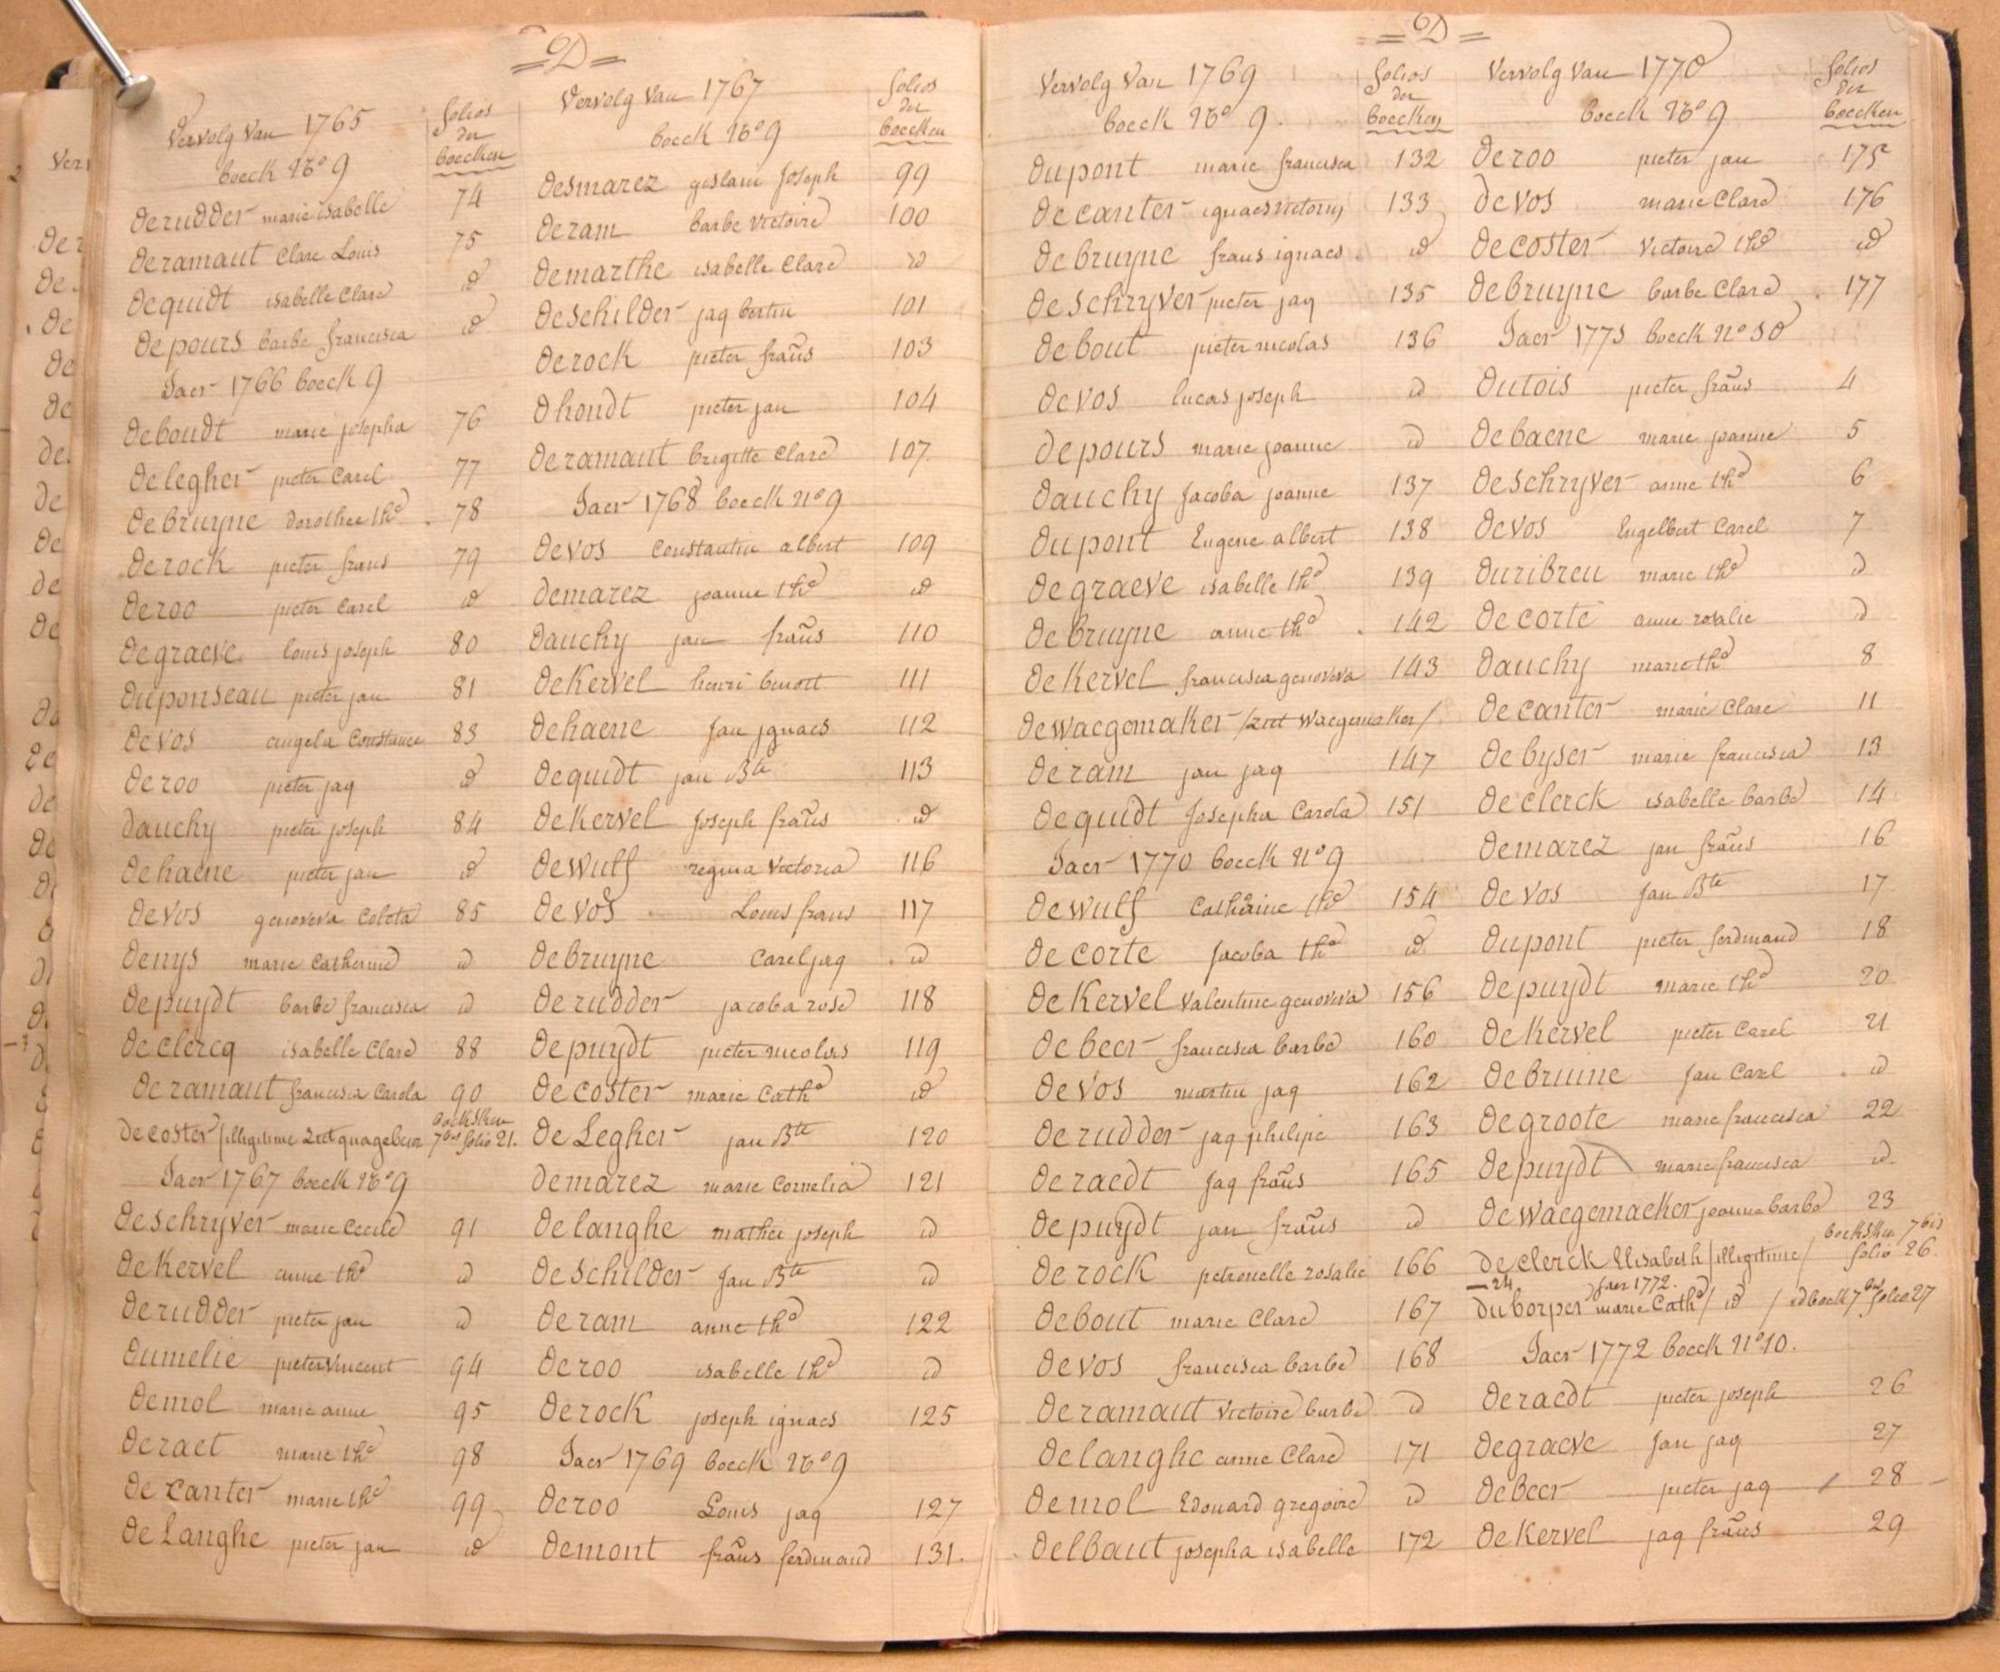 =D=
Vervolg Van 1765
boeck No 9
folios
der
boecken
derudder marie isabelle 74
deramaut Clare Louis 75
dequidt isabelle Clare id
depours barbe francisca id
Jaer 1766 boeck 9
deboudt marie josepha 76
delegher pieter Carel 77
debruyne dorothee thd 78
derock pieter frans 79
deroo pieter Carel id
degraeve louis joseph 80
duponseau pieter jan 81
devos angela Constance 83
deroo pieter jaq id
dauchy pieter joseph 84
dehaene pieter jan id
devos genoveva Coleta 85
denys marie Catherine id
depuydt barbe francisca id
declercq isabelle Clare 88
deramaut francisca Carola 90
decoster /illigitime ziet quagebeur boeksken 7bis folio 21.
Jaer 1767 boeck No 9
deschryver marie Cecile 91
deKervel anne thd id
derudder pieter jan id
dumelie pieter Vincent 94
demol marie anne 95
deraet marie thd 98
decanter marie thd 99
deLanghe pieter jan id
Vervolg Van 1767
boeck No 9
folios
der
boecken
desmarez gislain Joseph 99
deram barbe Victoire 100
demarthe isabelle Clare id
deschilder jaq bertin 101
derock pieter frans 103
dhondt pieter jan 104
deramaut brigitte Clare 107
Jaer 1768 boeck No 9
devos Constantin albert 109
demarez joanne thd id
dauchy jan frans 110
deKervel henri benoit 111
dehaene Jan jgnaes 112
dequidt jan Bte 113
deKervel Joseph frans id
dewulf regina Victoria 116
devos Louis frans 117
debruyne Carel jaq id
derudder jacoba rose 118
depuydt pieter nicolais 119
decoster marie Cathe id
deLegher jan Bte 120
demarez marie Cornelia 121
delanghe mathei joseph id
deschilder Jan Bte id
deram anne thd 122
deroo isabelle thd id
derock joseph ignaes 125
Jaer 1769 boeck No 9
deroo Louis jaq 127
demont frans ferdinand 131.
=D=
Vervolg Van 1769
boeck No 9.
folios
der
boecken
dupont marie francisca 132
decanter ignaes Victorin 133
debruyne frans ignaes id
deschryver pieter jaq 135
debout pieter nicolas 136
devos lucas joseph id
depours marie joanne id
dauchy Jacoba joanne 137
dupont Eugene albert 138
degraeve isabelle thd 139
debruyne anne thd 142
deKervel francisca genoveva 143
dewaegemaker /ziet Waegemaker/
deram jan jaq 147
dequidt Josepha Carola 151
Jaer 1770 boeck No 9
dewulf Cathrine thd 154
decorte Jacoba thd id
deKervel Valentine genoveva 156
debeer francisca barbe 160
devos martin jaq 162
derudder jaq philipe 163
deraedt Jaq frans 165
depuydt jan frans id
derock petronelle rosalie 166
debout marie Clare 167
devos francisca barbe 168
deramaut Victoire barbe id
delanghe anne Clare 171
demol Edouard gregoire id
delbaut josepha isabelle 172
Vervolg Van 1770
boeck No 9
folios
der
boecken
deroo pieter jan 175
devos marie Clare 176
decoster Victoire thd id
debruyne barbe Clare 177
dutois pieter frans 4
debaene marie joanne 5
deschryver anne thd 6
devos Engelbert Carel 7
duribreu marie thd id
decorte anne rosalie id
dauchy marie thd 8
decanter marie Clare 11
debyser marie francisca 13
declerck isabelle barbe 14
demarez jan frans 16
devos Jan Bte 17
dupont pieter ferdinand 18
depuydt marie thd 20
deKervel pieter Carel 21
debruine Jan Carel id
degroote marie francisca 22
depuydt marie francisca id
dewaegemaeker joanna barbe 23
declerck Elisabeth /illigitime/ boeksken 7bis folio 26.
-24 Jaer 1772.
duborper marie Cathe/ id / id boeck 7bis folio 27
Jaer 1772 boeck No 10.
deraedt pieter joseph 26
degraeve Jan jaq 27
debeer pieter jaq 28
deKervel jaq frans 29